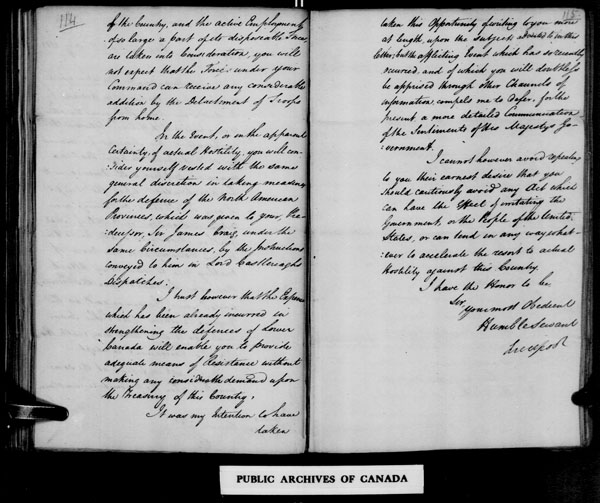 114
of the Country, and the active Employment
of so large a part of its disposeable Force
are taken into Consideration, you will
not expect that the Force under your
Command can receive any considerable
addition by the Detachment of Troops
from home.
In the Event, or on the apparent
Certainty, of actual Hostility, you will con-
:sider yourself vested with the same
general discretion in taking measures
for the defence of the North American
Provinces, which was given to your Pre
:decessor, Sir James Craig, under the
same Circumstances, by the Instructions
conveyed to him in Lord Castlereagh's
Dispatches.
I trust however that the Expence
which has been already incurred in
strengthening the defences of Lower
Canada will enable you to provide
adequate means of Resistance without
making any considerable demand upon
the Treasury of this Country.
It was my Intention to have
taken
115
taken this Opportunity of writing to you more
at length, upon the Subjects adverted to in this
letter, but the afflicting Event which has so recently
occurred, and of which you will doubtless
be apprised through other Channels of
information compels me to defer, for the
present a more detailed Communication
of the Sentiments of His Majesty's Go-
:vernment.
I cannot however avoid repeating
to you their earnest desire that you
should cautiously avoid any Act which
can have the Effect of irritating the
Government, or the People of the United
States, or can tend in any way what-
:ever to accelerate the resort to actual
Hostility against this Country
I have the Honor to be
Sir
Your most Obedient
Humble Servant
Liverpool
PUBLIC ARCHIVES OF CANADA